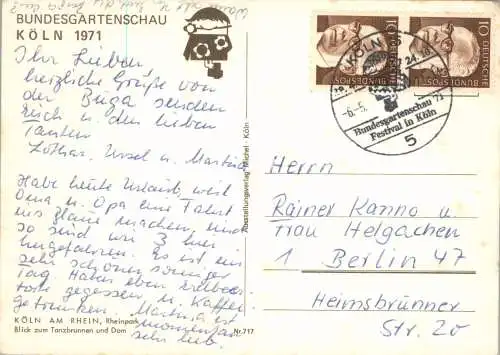 BUNDESGARTENSCHAU
KÖLN 1971
Ihr Lieben
herzliche Grüße von
der Buga senden
Euch u. den lieben
Tanten
Lothar, Ursel u. Martina
Habe heute Urlaub, weil
Oma u. Opa eine Fahrt
ins machen, und
so sind wir 3 hier
hingefahren. Es ist ein
sehr schöner sonniger
Tag. Haben eben Erdbeer-
torte gegessen u. Kaffee
getrunken. Martina ist
momentan
sehr lieb.
KÖLN AM RHEIN, Rheinpark
Blick zum Tanzbrunnen und Dom
Nr. 717
Ausstellungsverlag Michel · Köln
10 DEUTSCHE BUNDESPOST
10 DEUTSCHE BUNDESPOST
KÖLN
-6.-5. 71
Bundesgartenschau
Festival in Köln
5
Herrn
Rainer Kanno u.
Frau Helgachen
1 Berlin 47
Heimsbrunner
Str. 20